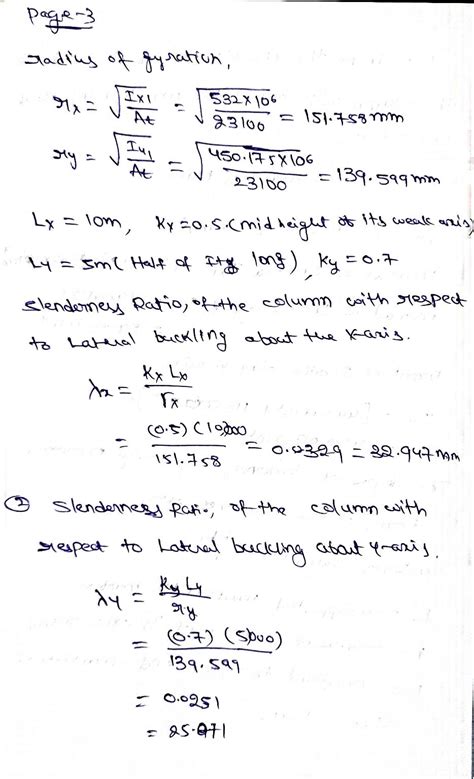 Page-3
radius of gyration,
rx = √(Ix1/At) = √(532×10⁶/23100) = 151.758mm
ry = √(Iy1/At) = √(450.175×10⁶/23100) = 139.599mm
Lx = 10m, Kx=0.5.(mid height of its weak axis)
Ly = 5m( Half of long), Ky=0.7
Slenderness Ratio, of the column with respect
to Lateral buckling about the x-axis.
λx = Kx Lx / rx
= (0.5)(10,000) / 151.758 = 0.0329 = 32.947mm
② Slenderness Ratio, of the column with
respect to Lateral buckling about y-axis.
λy = Ky Ly / ry
= (0.7)(5000) / 139.599
= 0.0251
= 25.071